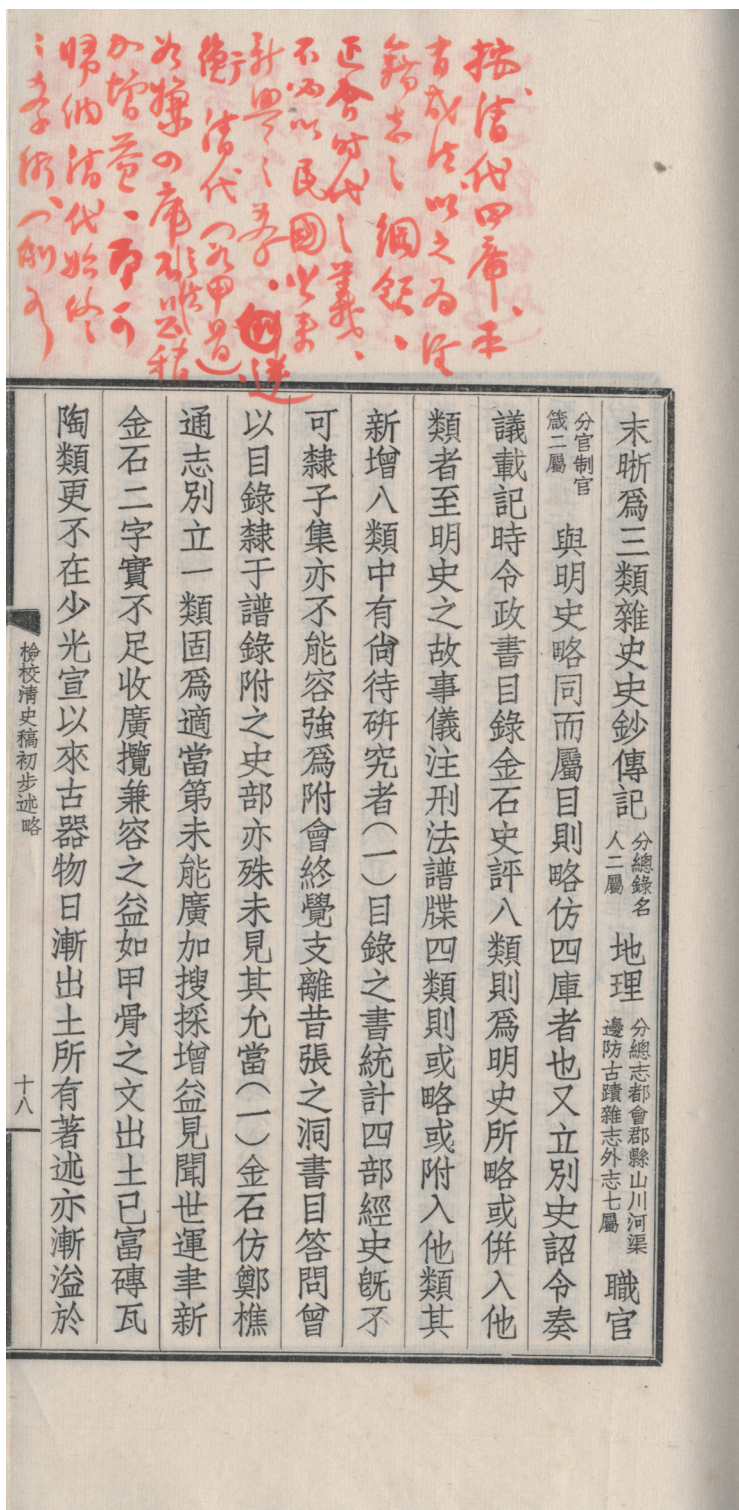 按、清代四庫、本
有成法、以之為
籍志之綱領、
正合時代之義、
不必以民國以來
新興之學、
衡清代
四庫
加增益、
歸納清代始終
之學術、
末晰爲三類雜史史鈔傳記分總錄名人二屬地理分總志都會郡縣山川河渠邊防古蹟雜志外志七屬職官
分官制官箴二屬與明史略同而屬目則略仿四庫者也又立別史詔令奏
議載記時令政書目錄金石史評八類則爲明史所略或倂入他
類者至明史之故事儀注刑法譜牒四類則或略或附入他類其
新增八類中有尙待硏究者(一)目錄之書統計四部經史旣不
可隸子集亦不能容強爲附會終覺支離昔張之洞書目答問曾
以目錄隸于譜錄附之史部亦殊未見其允當(一)金石仿鄭樵
通志別立一類固爲適當第未能廣加搜採增益見聞世運聿新
金石二字實不足收廣攬兼容之益如甲骨之文出土已富磚瓦
陶類更不在少光宣以來古器物日漸出土所有著述亦漸溢於
檢校淸史稿初步述略
十八